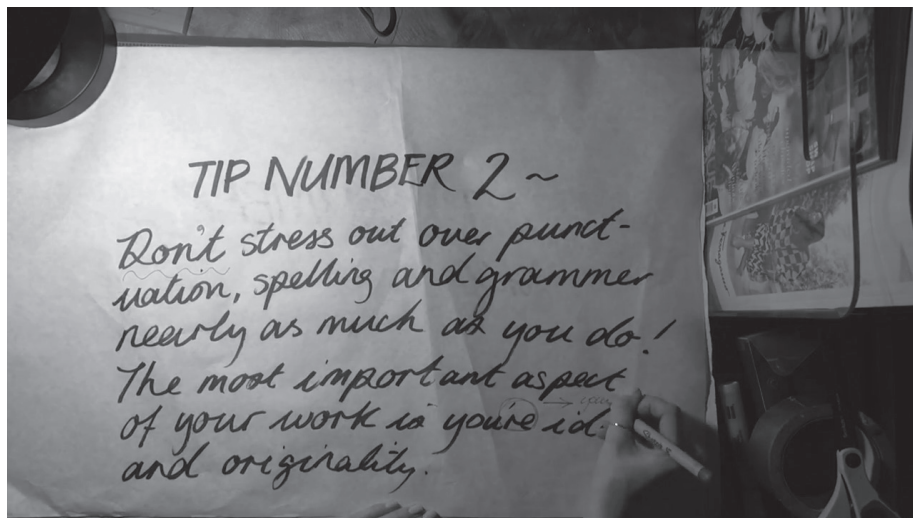 TIP NUMBER 2~
Don't stress out over punct-
uation, spelling and grammer
nearly as much as you do!
The most important aspect
of your work is you're id
and originality.